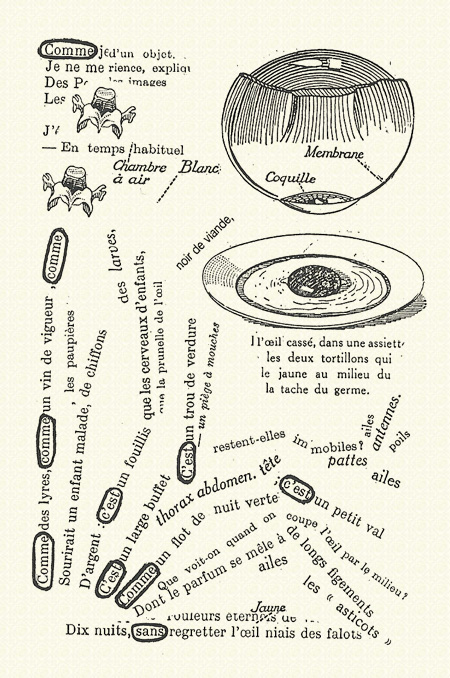 Comme j'ed'un objet.
Je ne me rience, expliqu
Des P les images
Les
J'
— En temps habituel
Chambre Blanc
à air
Membrane
Coquille
noir de viande,
l'œil cassé, dans une assiett
les deux tortillons qui
le jaune au milieu du
la tache du germe.
Comme des lyres, comme un vin de vigueur, comme
Sourirait un enfant malade, de chiffons
les paupières
D'argent; c'est un fouillis que les cerveaux d'enfants,
des larves,
que la prunelle de l'œil
C'est un large buffet
C'est un trou de verdure
— un piège à mouches
restent-elles immobiles?
ailes
antennes.
pattes
poils
ailes
thorax abdomen. tête
Comme un flot de nuit verte; c'est un petit val
Que voit-on quand on coupe l'œil par le milieu?
Dont le parfum se mêle à de longs figements
ailes
les « asticots »
Jaune
rouleurs éternels de
Dix nuits, sans regretter l'œil niais des falots